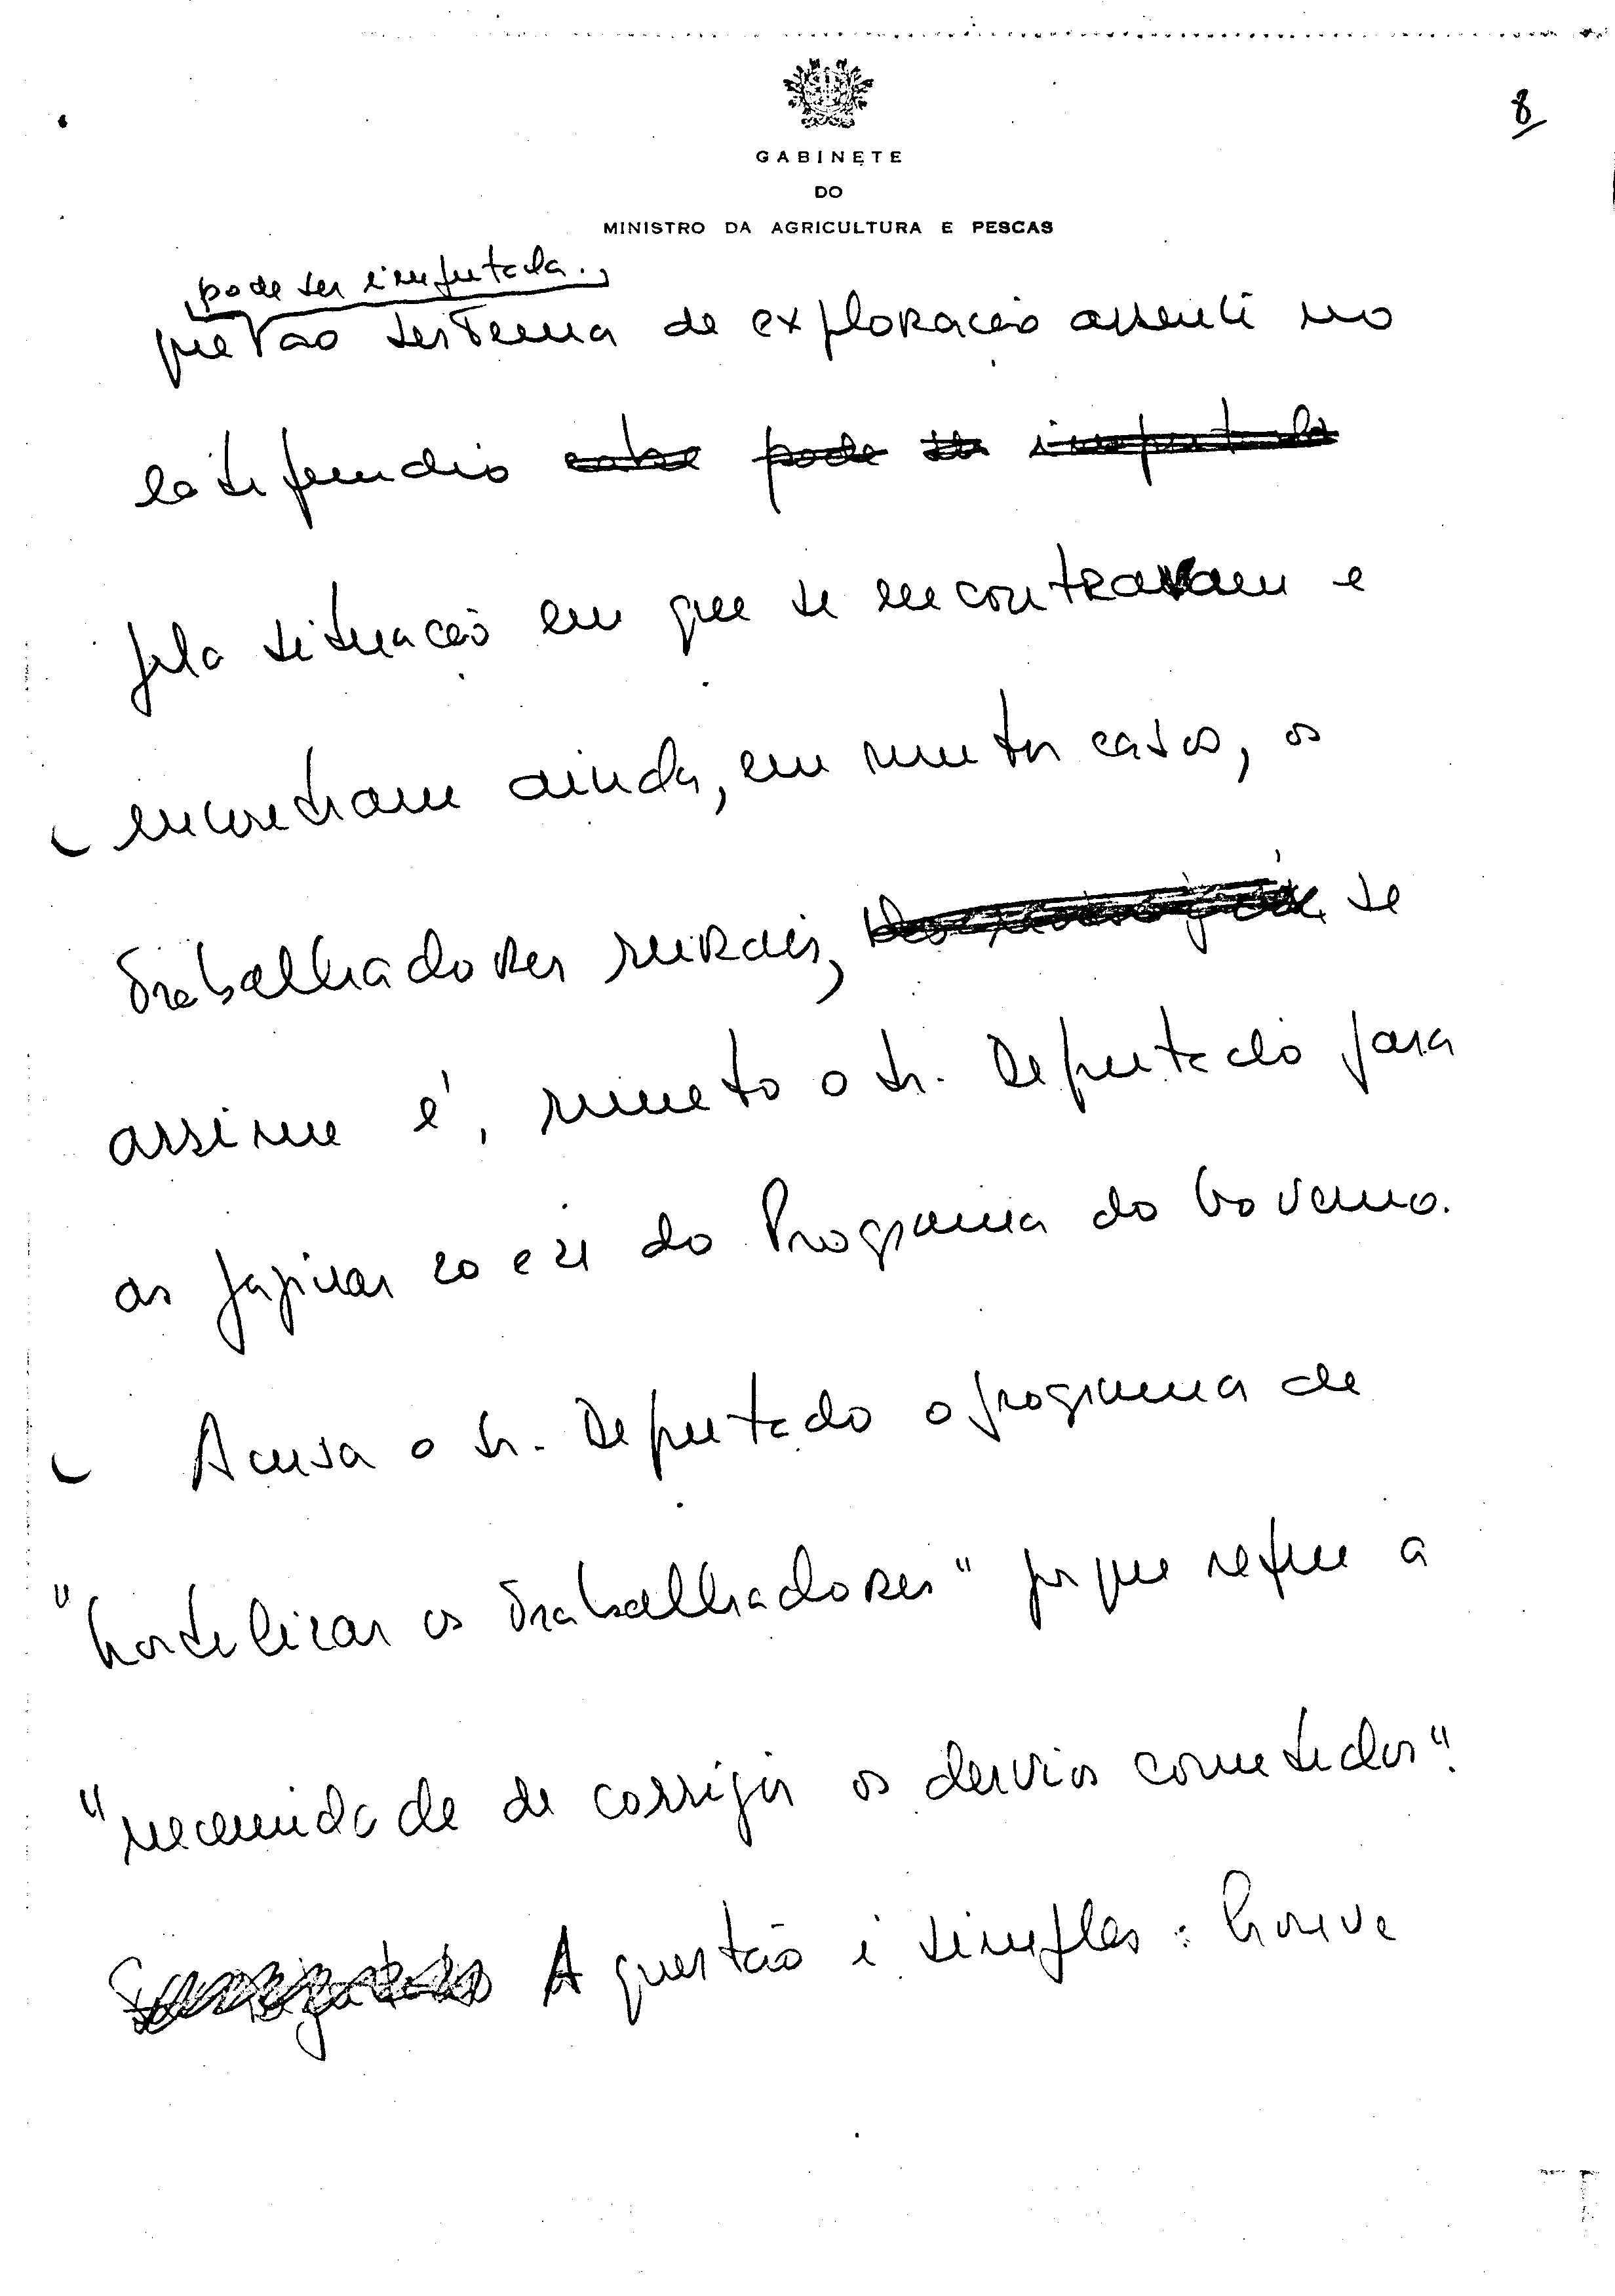 8
GABINETE
DO
MINISTRO DA AGRICULTURA E PESCAS
pode ser imputada
que ao sistema de exploração assente no
latifundio cabe pode ser imputada
pela situação em que se encontravam e
encontram ainda, em muitos casos, os
trabalhadores rurais, se
assim é, remeto o Sr. Deputado para
as páginas 20 e 21 do Programa do Governo.
Acusa o Sr. Deputado o programa de
"hostilizar os trabalhadores" porque refere a
"necessidade de corrigir os desvios cometidos".
A questão é simples: houve